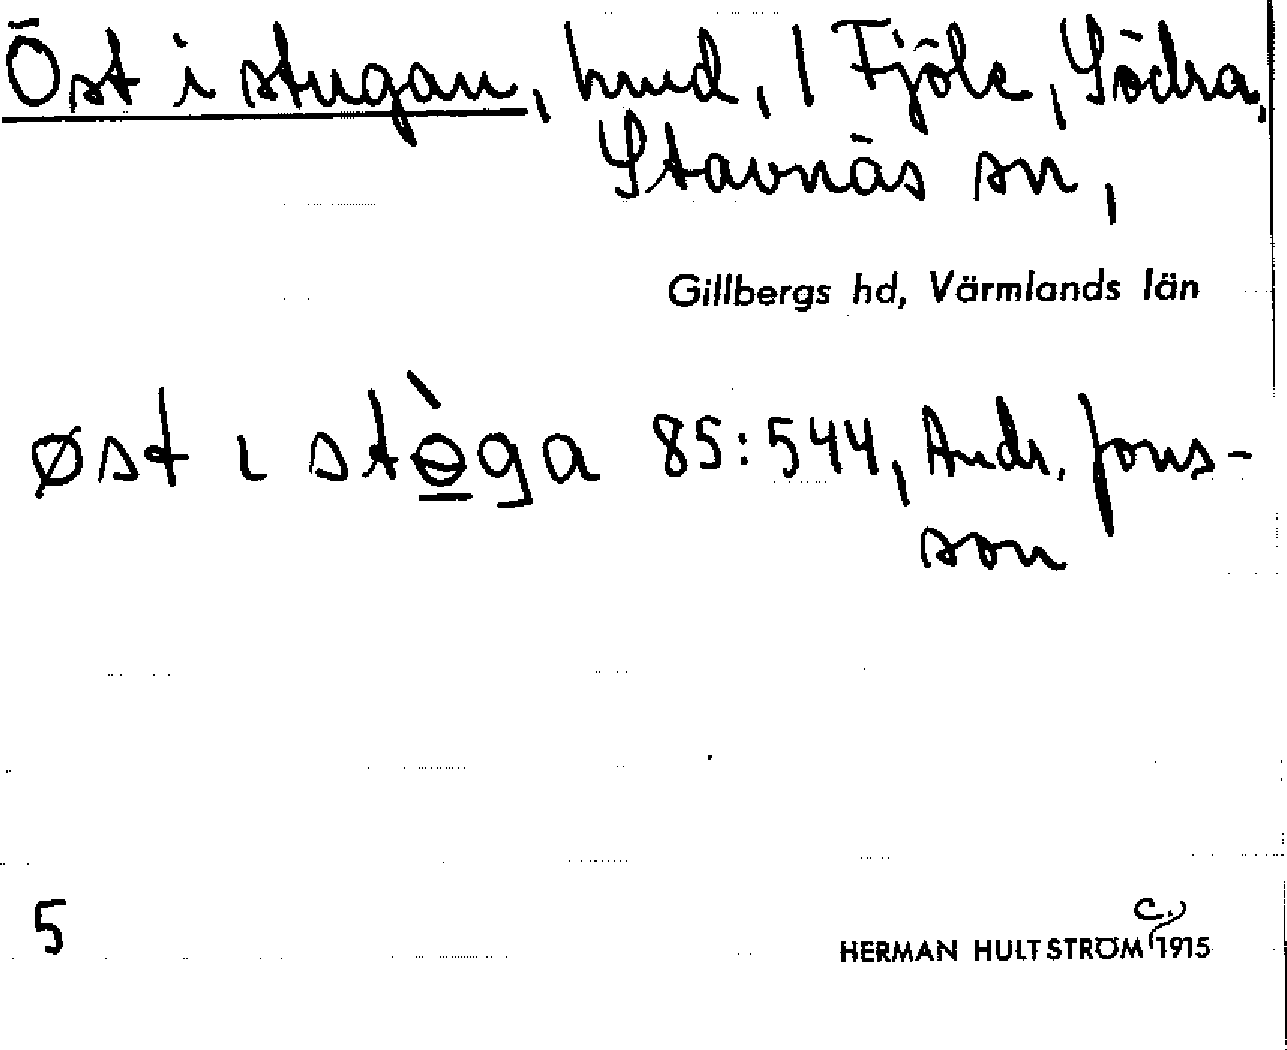 Öst i stugan, hmd, 1 Fjöle, Södra,
Stavnäs sn,
Gillbergs hd, Värmlands län
øst ɩ stɵ̠̀ga 85:544, Andr. Jons-
son
5
c.
HERMAN HULTSTRÖM 1915